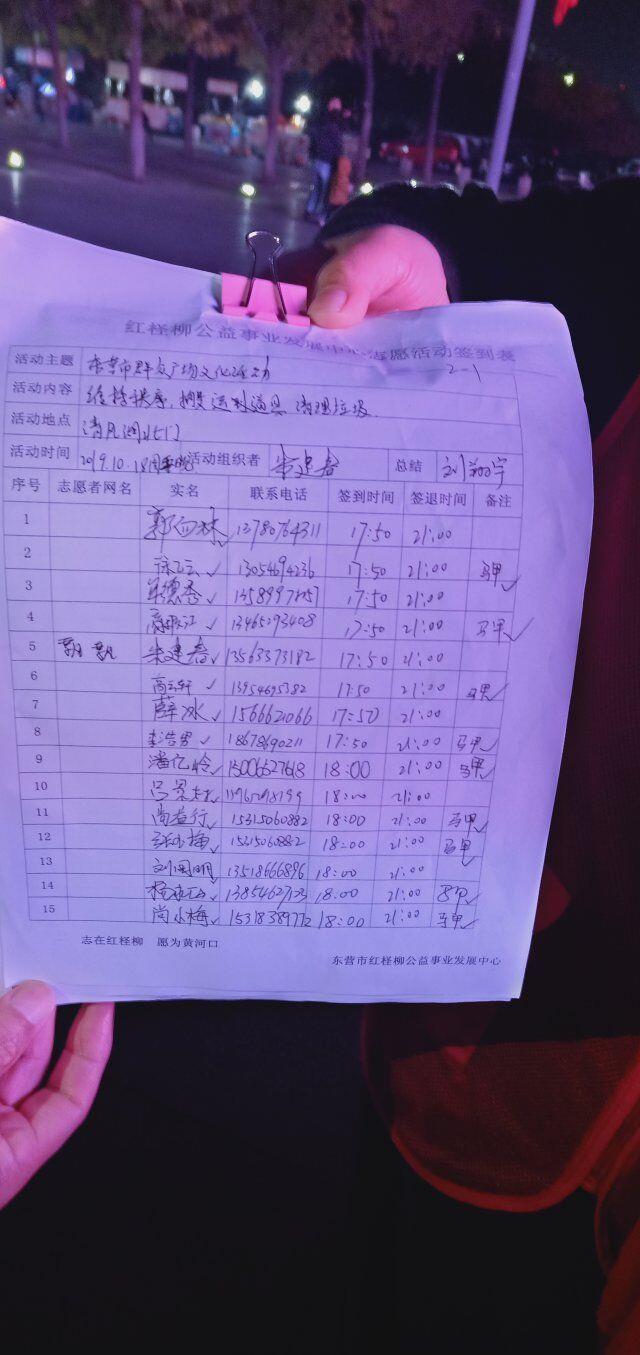 红柽柳公益事业发展中心志愿活动签到表
2-1
活动主题 东营市群众广场文化活动
活动内容 维持秩序,搬运道具 清理垃圾.
活动地点 清风湖北门
活动时间 2019.10.18周 晚 活动组织者 朱建春 总结 刘翔宇
序号 志愿者网名 实名 联系电话 签到时间 签退时间 备注
1 郭 林 13780764311 17:50 21:00
2 徐 云 13054694236 17:50 21:00 马甲✓
3 德 ✓ 17:50 21:00
4 江 ✓ 13465293408 17:50 21:00 马甲✓
5 朱建春✓ 13563373182 17:50 21:00
6 高 轩 ✓ 13954695382 17:50 21:00 马甲✓
7 薛冰✓ 1566621066 17:50 21:00
8 李浩男✓ 18678690211 17:50 21:00 马甲✓
9 潘亿岭✓ 15006627618 18:00 21:00 马甲✓
10 吕景 ✓ 18:00 21:00
11 尚益行✓ 15315060882 18:00 21:00 马甲✓
12 梅✓ 15315060882 18:00 21:00 马甲✓
13 刘国明 13518666896 18:00 21:00
14 杨 山✓ 18:00 21:00 马甲✓
15 尚小梅✓ 15318389772 18:00 21:00 马甲✓
志在红柽柳 愿为黄河口
东营市红柽柳公益事业发展中心